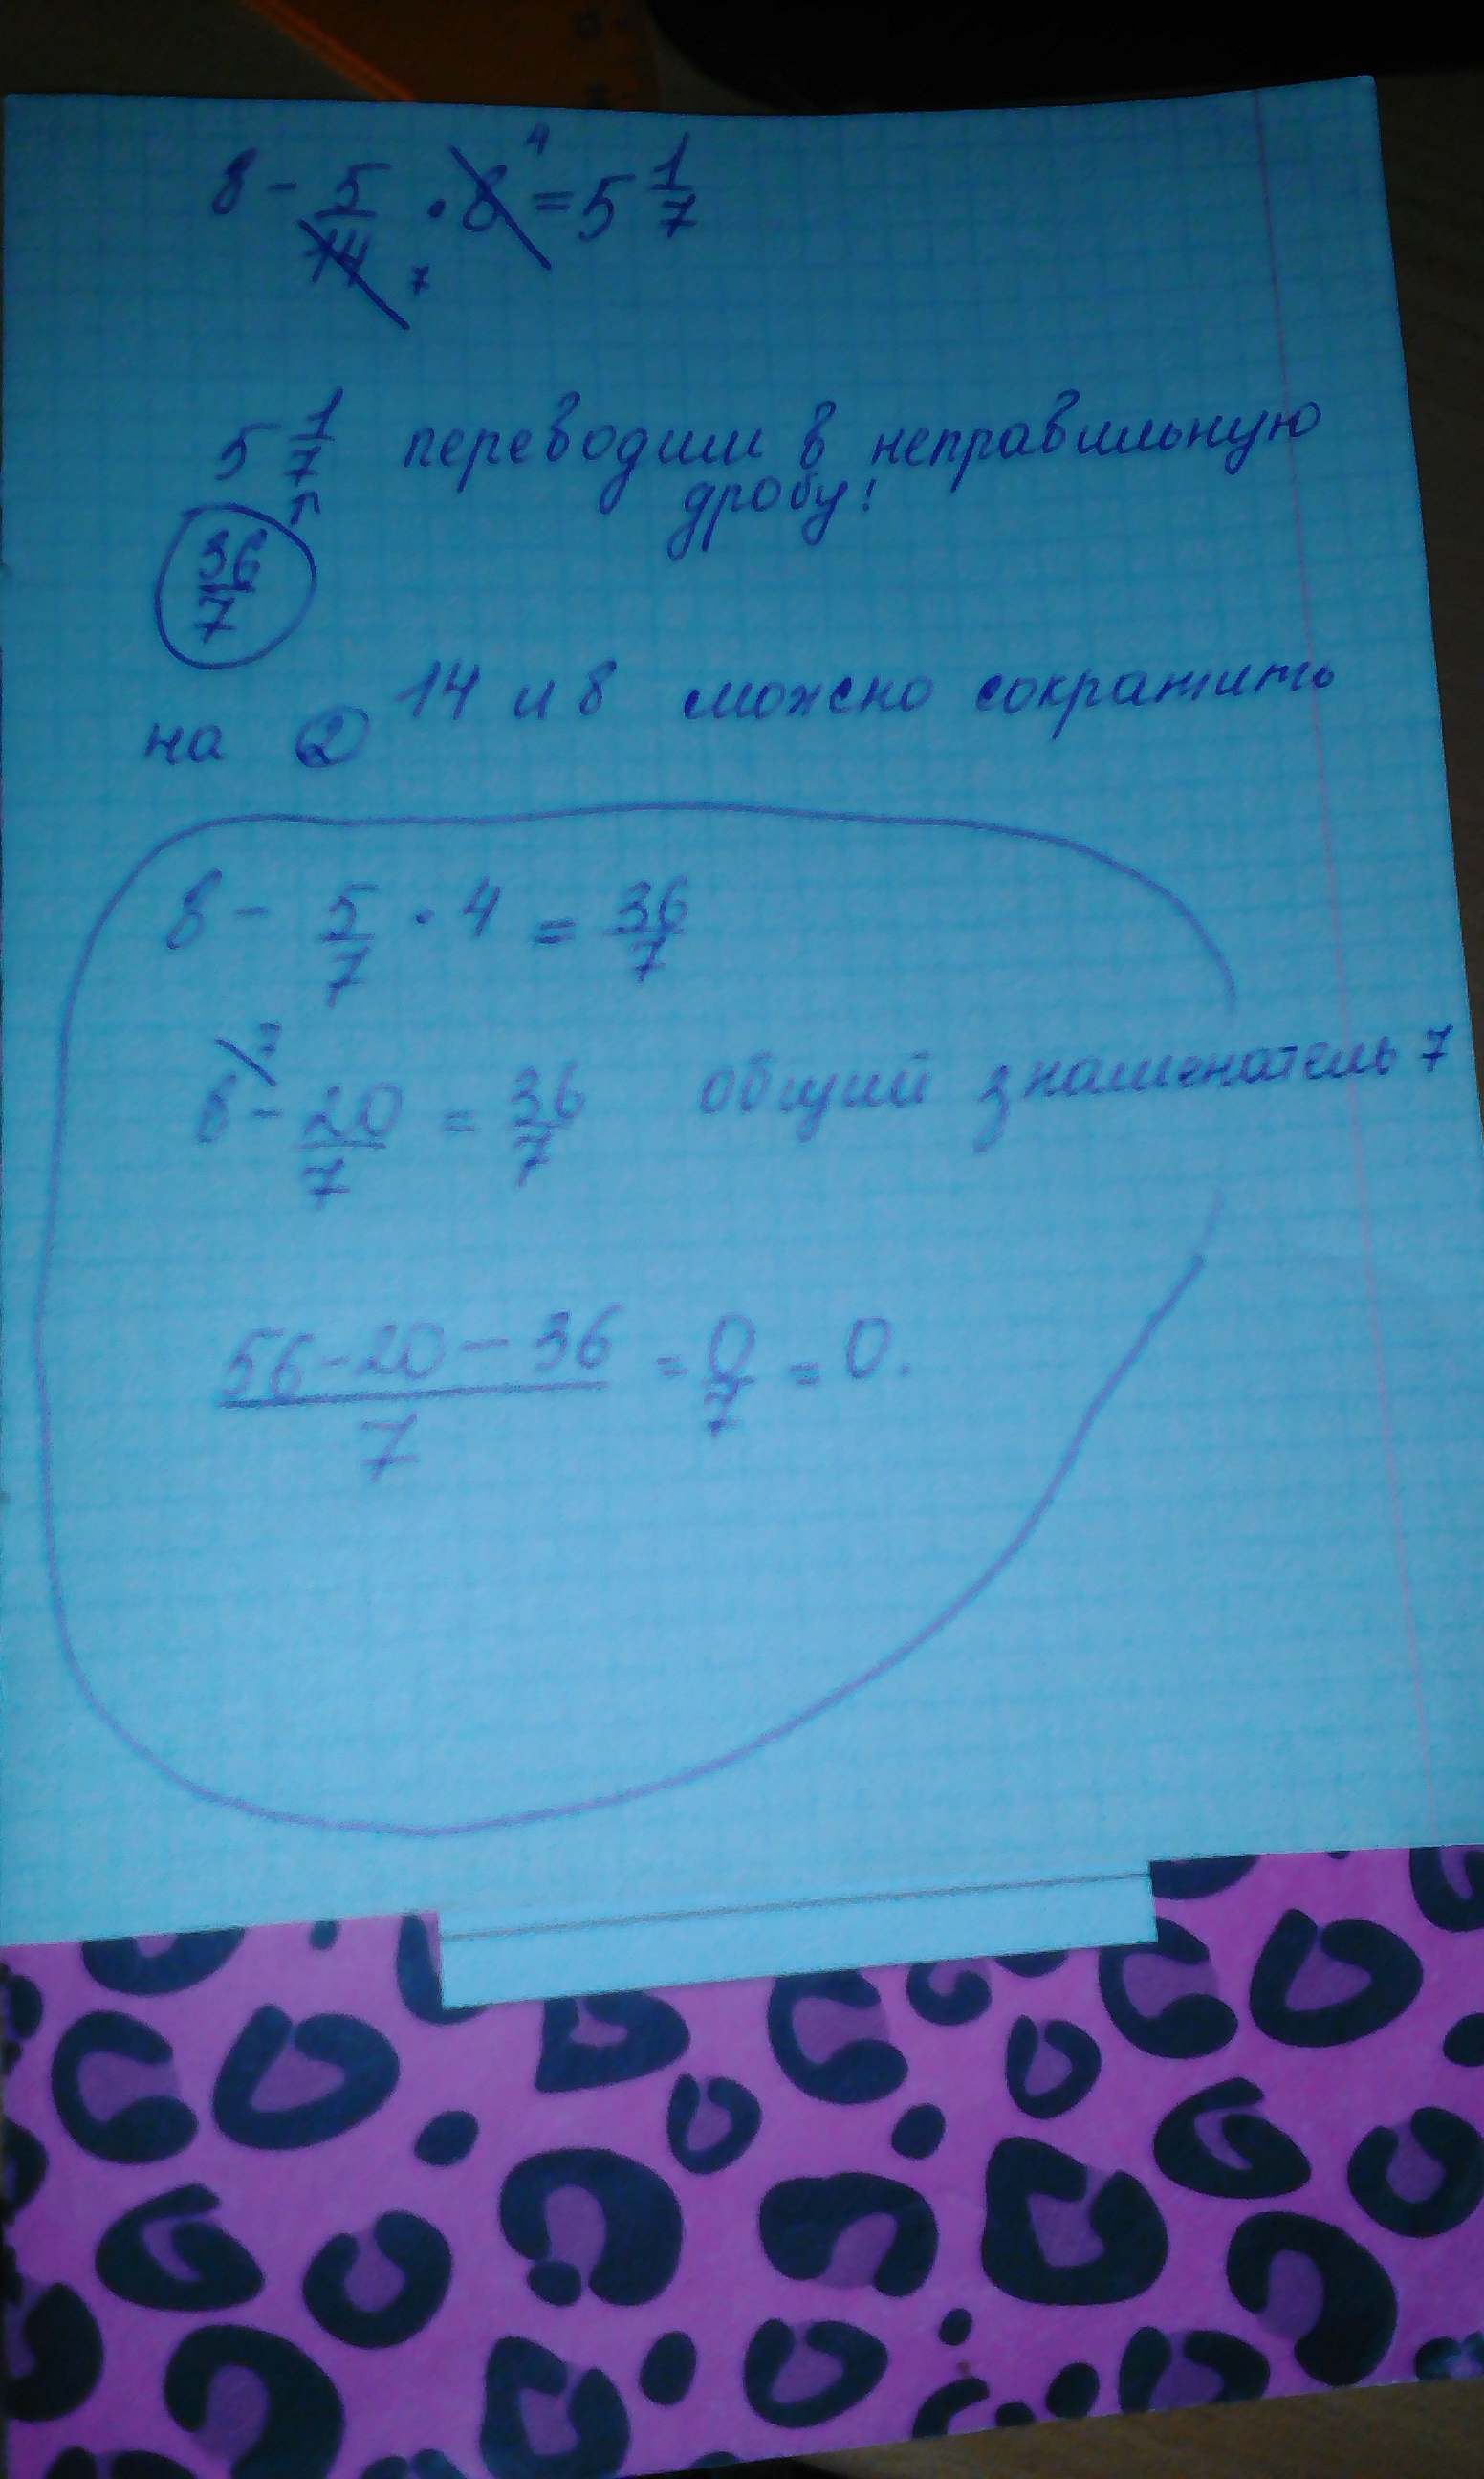 8 - 5/14 7 · 8 4 = 5 1/7
5 1/7 переводим в неправильную
дробу!
36/7
14 и 8 можно сократить
на 2
8 - 5/7 · 4 = 36/7
8 7 - 20/7 = 36/7 общий знаменатель 7
56-20-36/7 = 0/7 = 0.